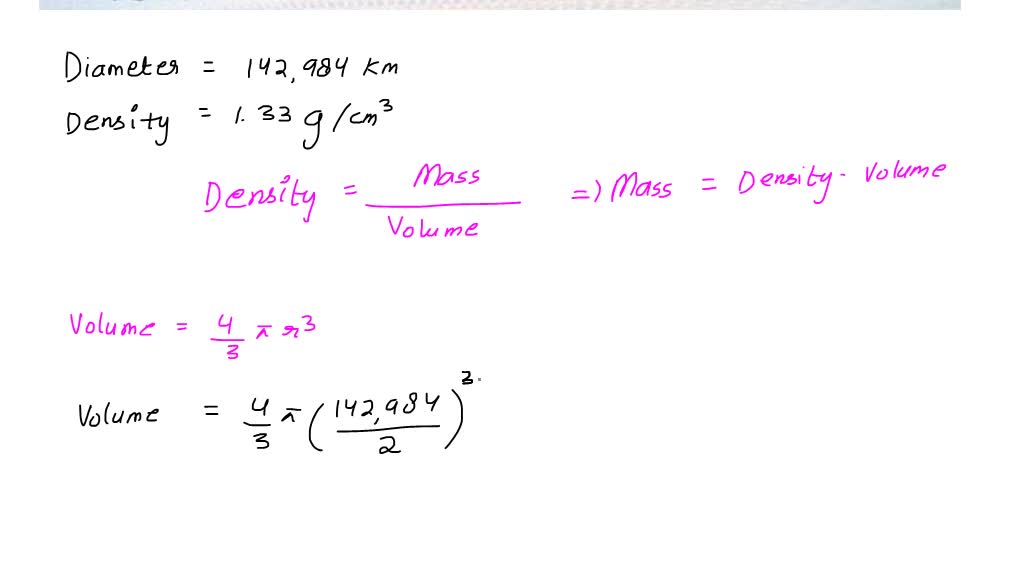 Diameter = 142,984 km
Density = 1.33 g/cm³
Density = Mass / Volume => Mass = Density · Volume
Volume = 4/3 π r³
Volume = 4/3 π (142,984 / 2)³